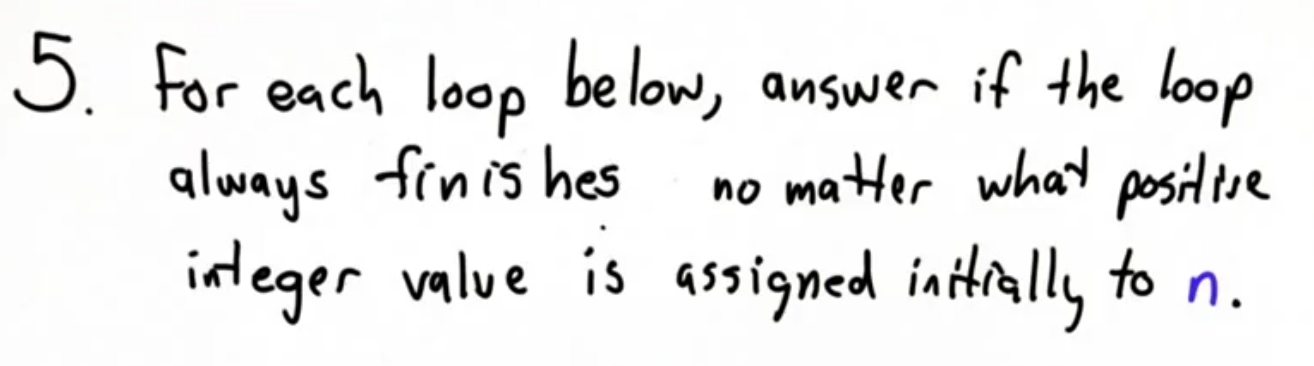 5. For each loop below, answer if the loop
always finishes no matter what positive
integer value is assigned initially to n.